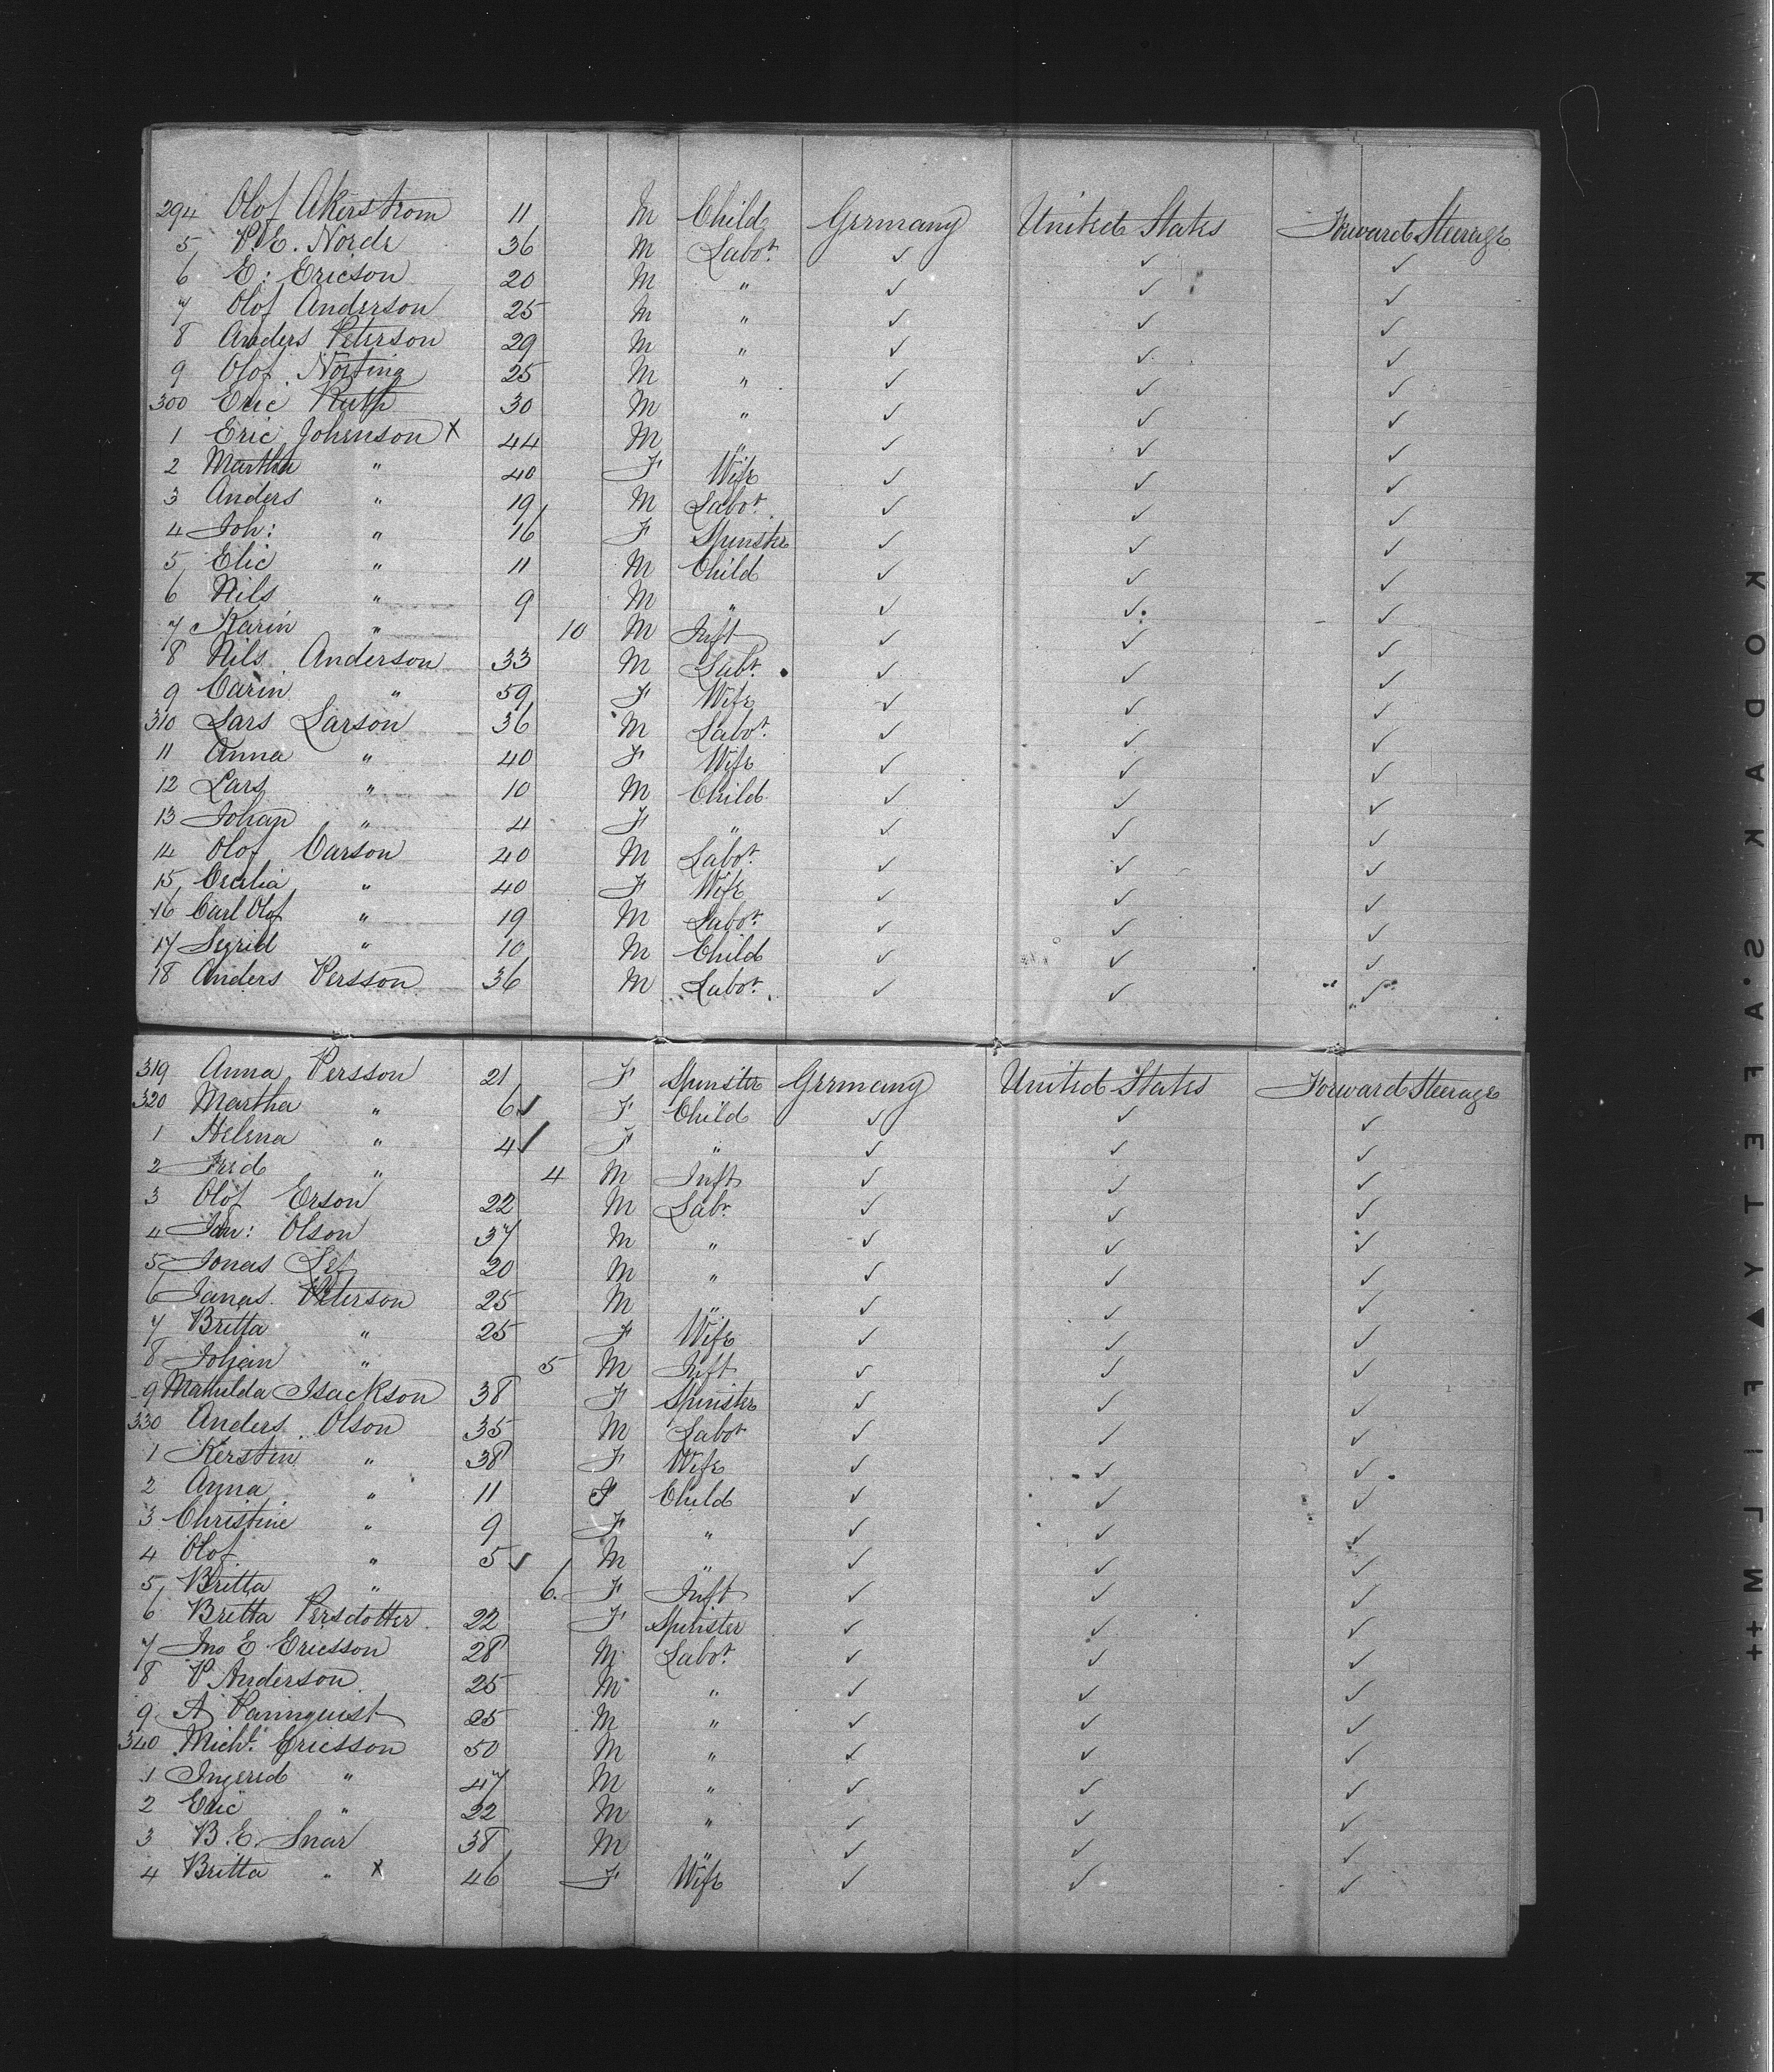 294 Olof Akerstrom 11 M Child Germany United States Forward Steerage
5 P.E. Norde 36 M Labor ✓ ✓ ✓
6 E: Ericson 20 M " ✓ ✓ ✓
7 Olof Anderson 25 M " ✓ ✓ ✓
8 Anders Peterson 29 M " ✓ ✓ ✓
9 Olof Norting 25 M " ✓ ✓ ✓
300 Eric Ruth 30 M " ✓ ✓ ✓
1 Eric Johenson X 44 M " ✓ ✓ ✓
2 Martha " 40 F Wife ✓ ✓ ✓
3 Anders " 19 M Labor ✓ ✓ ✓
4 Joh: " 16 F Spinster ✓ ✓ ✓
5 Elic " 11 M Child ✓ ✓ ✓
6 Nils " 9 M " ✓ ✓ ✓
7 Karin " 10 M Inft ✓ ✓ ✓
8 Nils Anderson 33 M Labr. ✓ ✓ ✓
9 Carin " 59 F Wife ✓ ✓ ✓
310 Lars Larson 36 M Labor. ✓ ✓ ✓
11 Anna " 40 F Wife ✓ ✓ ✓
12 Lars " 10 M Child ✓ ✓ ✓
13 Johan " 4 F " ✓ ✓ ✓
14 Olof Carson 40 M Labor. ✓ ✓ ✓
15 Cecilia " 40 F Wife ✓ ✓ ✓
16 Carl Olof " 19 M Labor. ✓ ✓ ✓
17 Segrid " 10 M Child ✓ ✓ ✓
18 Anders Persson 36 M Labor. ✓ ✓ ✓
319 Anna Persson 21 F Spinster Germany United States Forward Steerage
320 Martha " 6 ✓ F Child ✓ ✓ ✓
1 Helena " 4 ✓ F " ✓ ✓ ✓
2 Fred " 4 M Inft ✓ ✓ ✓
3 Olof Erson 22 M Labr ✓ ✓ ✓
4 Olson 37 M " ✓ ✓ ✓
5 Jonas 20 M " ✓ ✓ ✓
6 Janas Peterson 25 M " ✓ ✓ ✓
7 Britta " 25 F Wife ✓ ✓ ✓
8 Johan " 5 M Inft ✓ ✓ ✓
9 Mathilda Isackson 38 F Spinster ✓ ✓ ✓
330 Anders Olson 35 M Labor ✓ ✓ ✓
1 Kersten " 38 F Wife ✓ ✓ ✓
2 Anna " 11 F Child ✓ ✓ ✓
3 Christine " 9 F " ✓ ✓ ✓
4 Olof " 5 ✓ M " ✓ ✓ ✓
5 Britta " 6. F Inft ✓ ✓ ✓
6 Britta Persdotter 22 F Spinster ✓ ✓ ✓
7 Jno E. Ericsson 28 M Labor. ✓ ✓ ✓
8 P Anderson 25 M " ✓ ✓ ✓
9 A Pannquist 25 M " ✓ ✓ ✓
340 Michl. Ericsson 50 M " ✓ ✓ ✓
1 Ingered " 47 M " ✓ ✓ ✓
2 Eric " 22 M " ✓ ✓ ✓
3 B.E. Snar 38 M " ✓ ✓ ✓
4 Britta " X 46 F Wife ✓ ✓ ✓
++M L I F ▲ Y T E F A S . K A D O K